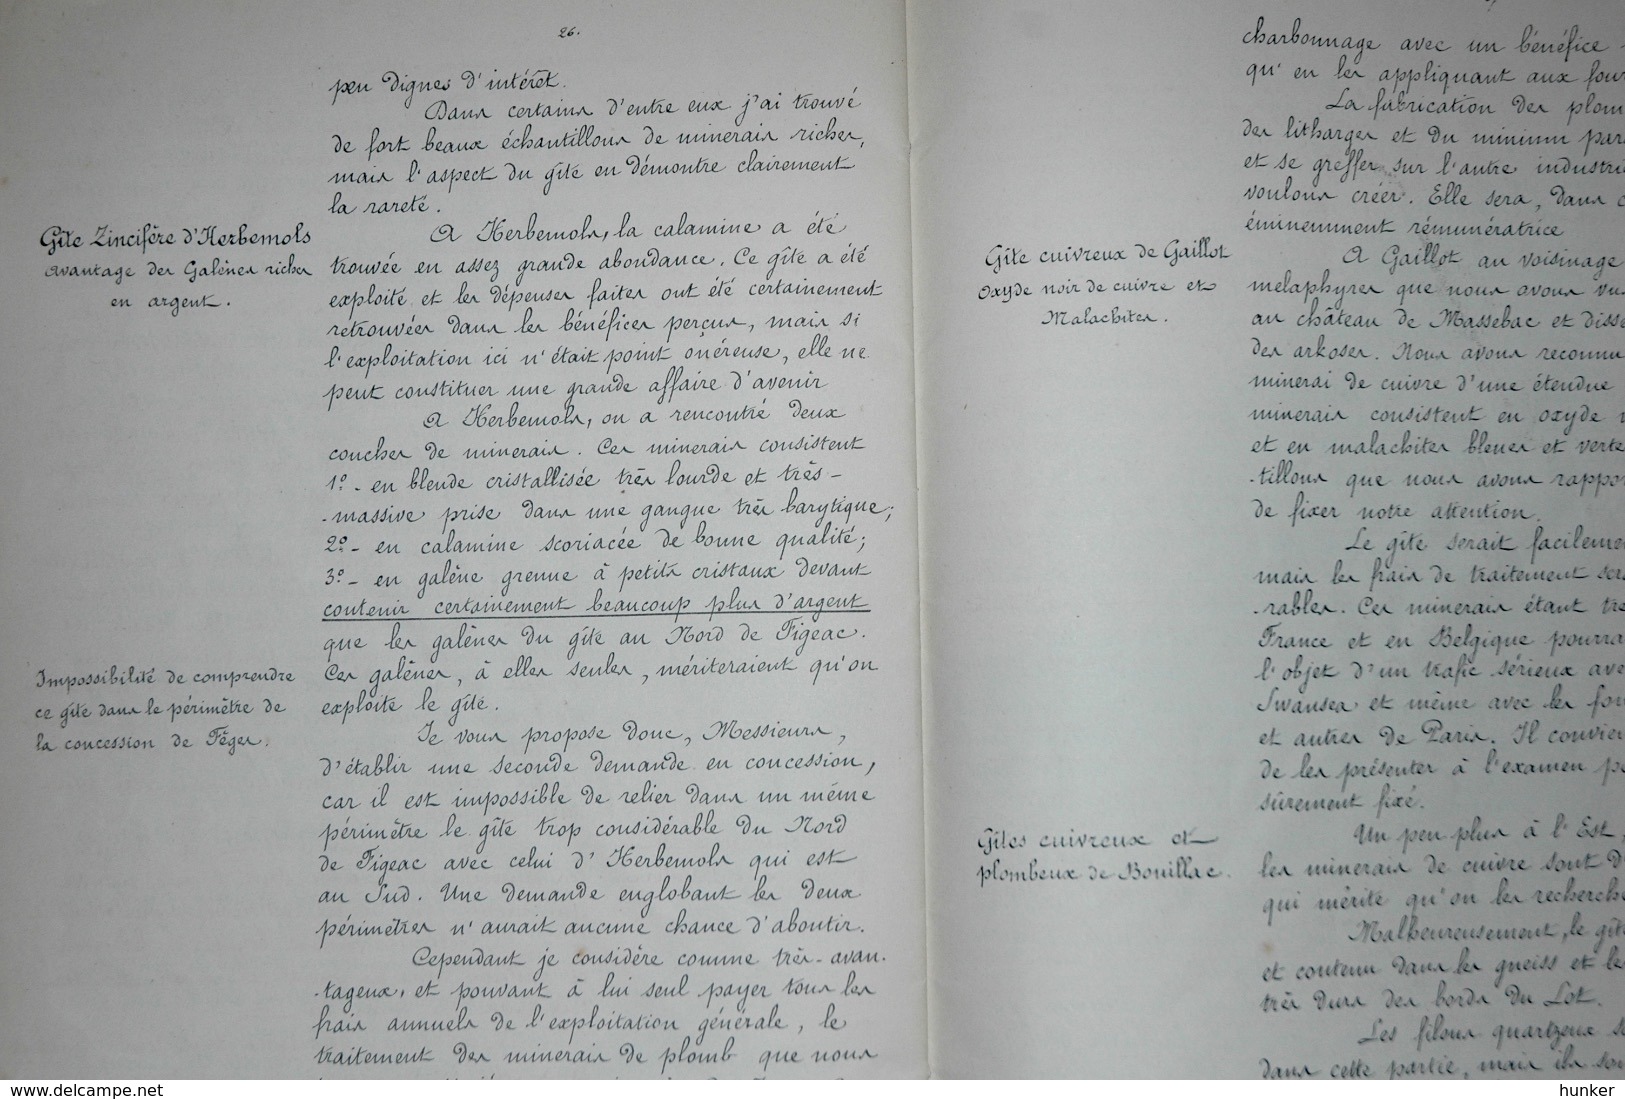 26.
peu dignes d'intérêt.
Dans certains d'entre eux j'ai trouvé
de fort beaux échantillons de minerais riches,
mais l'aspect du gîte en démontre clairement
la rareté.
Gîte Zincifère d'Herbemols
avantage des Galènes riches
en argent.
A Herbemols, la calamine a été
trouvée en assez grande abondance. Ce gîte a été
exploité et les dépenses faites ont été certainement
retrouvées dans les bénéfices perçus, mais si
l'exploitation ici n'était point onéreuse, elle ne
peut constituer une grande affaire d'avenir
A Herbemols, on a rencontré deux
couches de minerais. Ces minerais consistent
1º - en blende cristallisée très lourde et très-
-massive prise dans une gangue très barytique;
2º - en calamine scoriacée de bonne qualité;
3º - en galène grenue à petits cristaux devant
contenir certainement beaucoup plus d'argent
que les galènes du gîte au Nord de Figeac.
Ces galènes, à elles seules, mériteraient qu'on
exploite le gîte.
Impossibilité de comprendre
ce gîte dans le périmètre de
la concession de Féges.
Je vous propose donc, Messieurs,
d'établir une seconde demande en concession,
car il est impossible de relier dans un même
périmètre le gîte trop considérable du Nord
de Figeac avec celui d'Herbemols qui est
au Sud. Une demande englobant les deux
périmètres n'aurait aucune chance d'aboutir.
Cependant je considère comme très-avan.
-tageux, et pouvant à lui seul payer tous les
frais annuels de l'exploitation générale, le
traitement des minerais de plomb que nous
charbonnage avec un bénéfice
qu'en les appliquant aux four
La fabrication des plom
des litharges et du minium par
et se greffer sur l'autre industri
voulons créer. Elle sera, dans c
éminemment rémunératrice
Gîte cuivreux de Gaillot
Oxyde noir de cuivre et
Malachites.
A Gaillot au voisinage
melaphyres que nous avons vu
au château de Massebac et disse
des arkoses. Nous avons reconnu
minerai de cuivre d'une étendue
minerais consistent en oxyde n
et en malachites bleues et verte
-tillons que nous avons rappor
de fixer notre attention.
Le gîte serait facileme
mais les frais de traitement ser
-rables. Ces minerais étant tre
France et en Belgique pourra
l'objet d'un trafic sérieux ave
Swansea et même avec les fon
et autres de Paris. Il convien
de les présenter à l'examen pe
sûrement fixé.
Gîtes cuivreux et
plombeux de Bouillac.
Un peu plus à l'Est,
les minerais de cuivre sont d'
qui mérite qu'on les recherche
Malheureusement, le gîte
et contenu dans les gneiss et le
très durs des bords du Lot.
Les filons quartzeux s
dans cette partie, mais ils son
www.delcampe.net
hunker